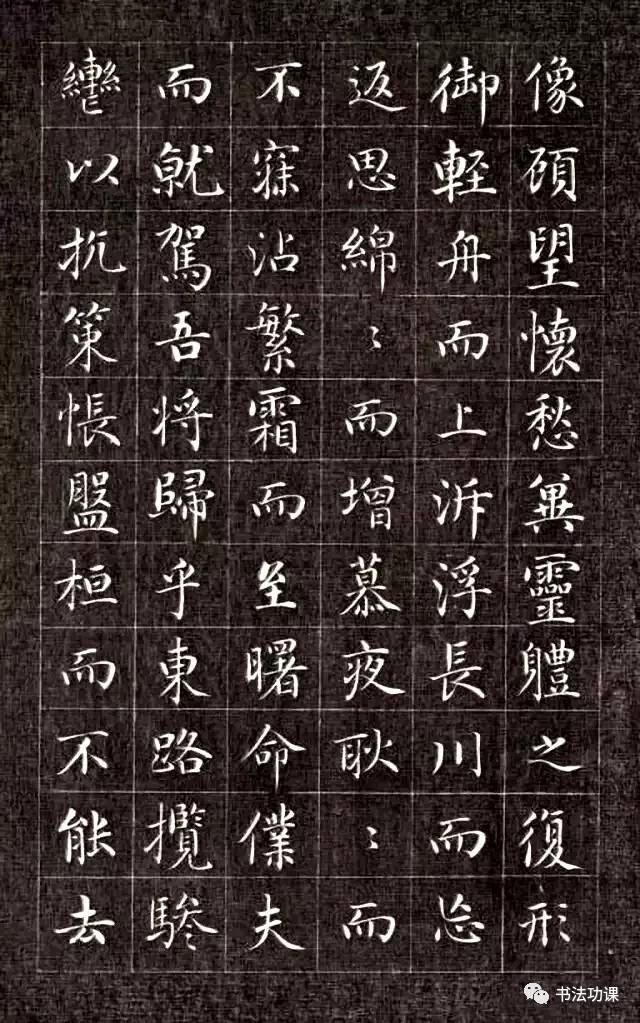 像顧望懷愁兾靈體之復形
御軽舟而上泝浮長川而忘
返思綿〻而增慕夜耿〻而
不寐沾繁霜而至曙命僕夫
而就駕吾将歸乎東路攬騑
轡以抗策悵盤桓而不能去
书法功课